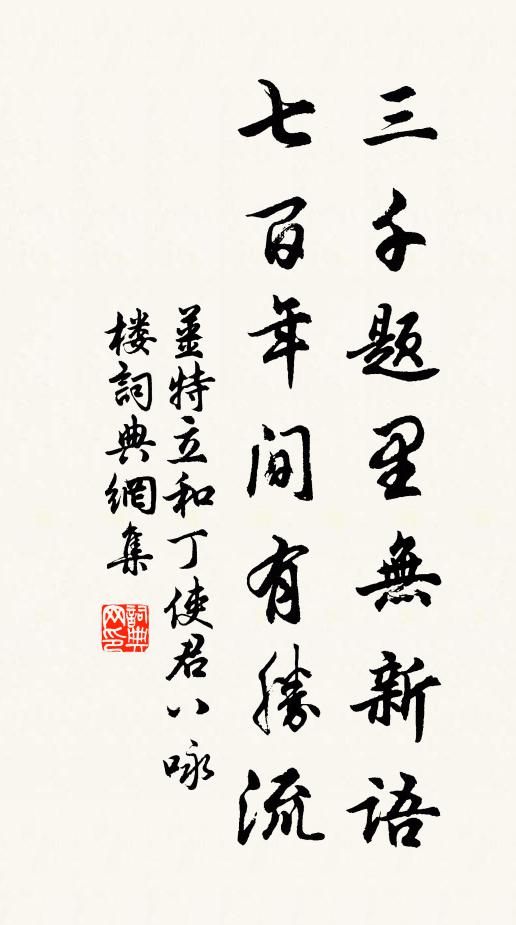 三千题里無新語
七百年间有勝流
姜特立和丁使君八咏
楼詞典網集
詞典网印